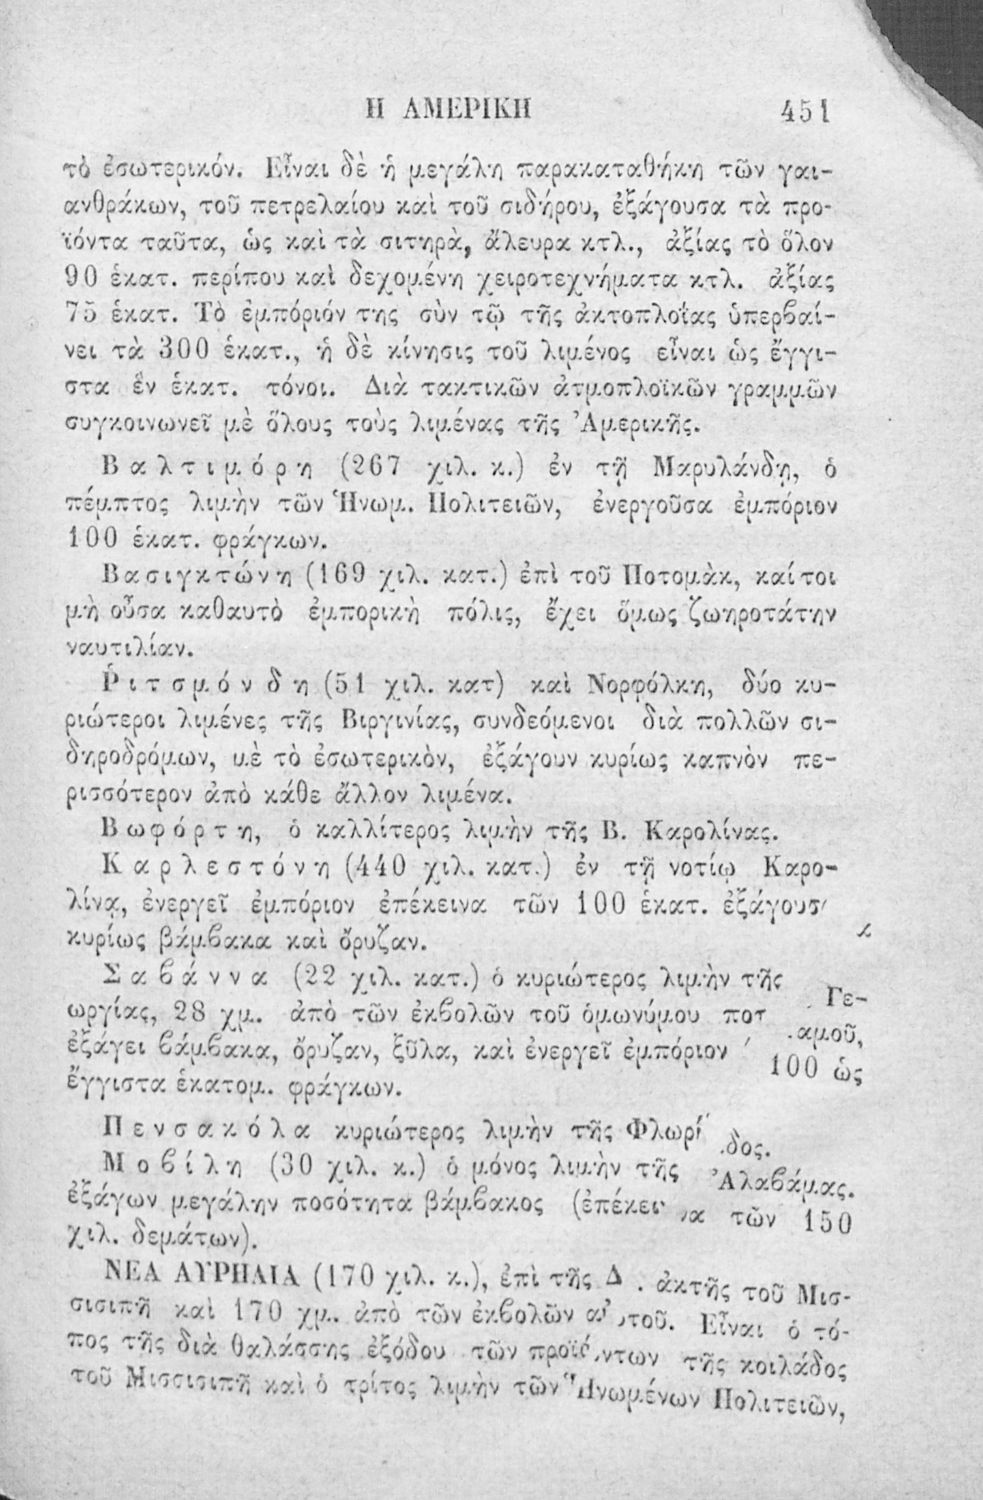 Η ΑΜΕΡΙΚΗ 451
τὸ ἐσωτερικόν. Εἶναι δὲ ἡ μεγάλη παρακαταθήκη τῶν γαι-
ανθράκων, τοῦ πετρελαίου καὶ τοῦ σιδήρου, ἐξάγουσα τὰ προ-
ϊόντα ταῦτα, ὡς καὶ τὰ σιτηρὰ, ἄλευρα κτλ., ἀξίας τὸ ὅλον
90 ἑκατ. περίπου καὶ δεχομένη χειροτεχνήματα κτλ. ἀξίας
75 ἑκατ. Τὸ ἐμπόριόν της σὺν τῷ τῆς ἀκτοπλοΐας ὑπερβαί-
νει τὰ 300 ἑκατ., ἡ δὲ κίνησις τοῦ λιμένος εἶναι ὡς ἔγγι-
στα ἓν ἑκατ. τόνοι. Διὰ τακτικῶν ἀτμοπλοϊκῶν γραμμῶν
συγκοινωνεῖ μὲ ὅλους τοὺς λιμένας τῆς Ἀμερικῆς.
Βαλτιμόρη (267 χιλ. κ.) ἐν τῇ Μαρυλάνδῃ, ὁ
πέμπτος λιμὴν τῶν Ἡνωμ. Πολιτειῶν, ἐνεργοῦσα ἐμπόριον
100 ἑκατ. φράγκων.
Βασιγκτώνη (169 χιλ. κατ.) ἐπὶ τοῦ Ποτομὰκ, καίτοι
μὴ οὖσα καθαυτὸ ἐμπορικὴ πόλις, ἔχει ὅμως ζωηροτάτην
ναυτιλίαν.
Ῥιτσμόνδη (51 χιλ. κατ) καὶ Νορφόλκη, δύο κυ-
ριώτεροι λιμένες τῆς Βιργινίας, συνδεόμενοι διὰ πολλῶν σι-
δηροδρόμων, μὲ τὸ ἐσωτερικὸν, ἐξάγουν κυρίως καπνὸν πε-
ρισσότερον ἀπὸ κάθε ἄλλον λιμένα.
Βωφόρτη, ὁ καλλίτερος λιμὴν τῆς Β. Καρολίνας.
Καρλεστόνη (440 χιλ. κατ.) ἐν τῇ νοτίῳ Καρο-
λίνᾳ, ἐνεργεῖ ἐμπόριον ἐπέκεινα τῶν 100 ἑκατ. ἐξάγουσα
κυρίως βάμβακα καὶ ὄρυζαν.
Σαβάννα (22 χιλ. κατ.) ὁ κυριώτερος λιμὴν τῆς Γε-
ωργίας, 28 χμ. ἀπὸ τῶν ἐκβολῶν τοῦ ὁμωνύμου ποταμοῦ,
ἐξάγει βάμβακα, ὄρυζαν, ξῦλα, καὶ ἐνεργεῖ ἐμπόριον 100 ὡς
ἔγγιστα ἑκατομ. φράγκων.
Πενσακόλα κυριώτερος λιμὴν τῆς Φλωρίδος.
Μοβίλη (30 χιλ. κ.) ὁ μόνος λιμὴν τῆς Ἀλαβάμας.
ἐξάγων μεγάλην ποσότητα βάμβακος (ἐπέκεινα τῶν 150
χιλ. δεμάτων).
ΝΕΑ ΑΥΡΗΛΙΑ (170 χιλ. κ.), ἐπὶ τῆς Δ. ἀκτῆς τοῦ Μισ-
σισιπῆ καὶ 170 χμ. ἀπὸ τῶν ἐκβολῶν αὐτοῦ. Εἶναι ὁ τό-
πος τῆς διὰ θαλάσσης ἐξόδου τῶν προϊόντων τῆς κοιλάδος
τοῦ Μισσισιπῆ καὶ ὁ τρίτος λιμὴν τῶν Ἡνωμένων Πολιτειῶν,